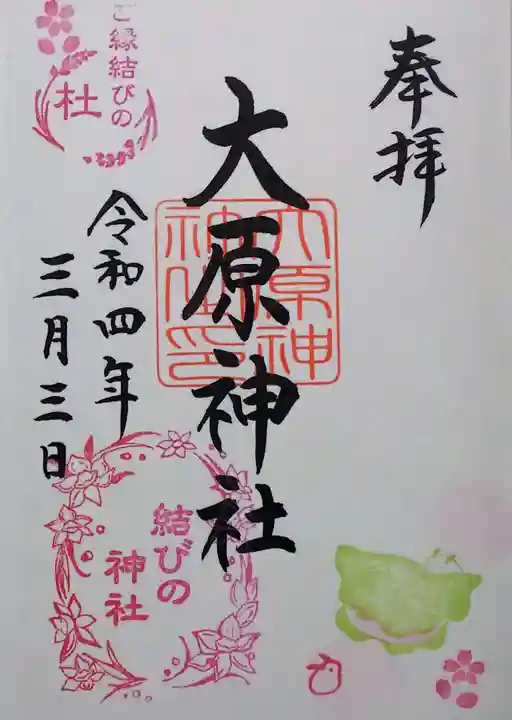 奉拝
大原神社
大原神
社之印
令和四年
三月三日
ご縁結びの
杜
結びの
神社